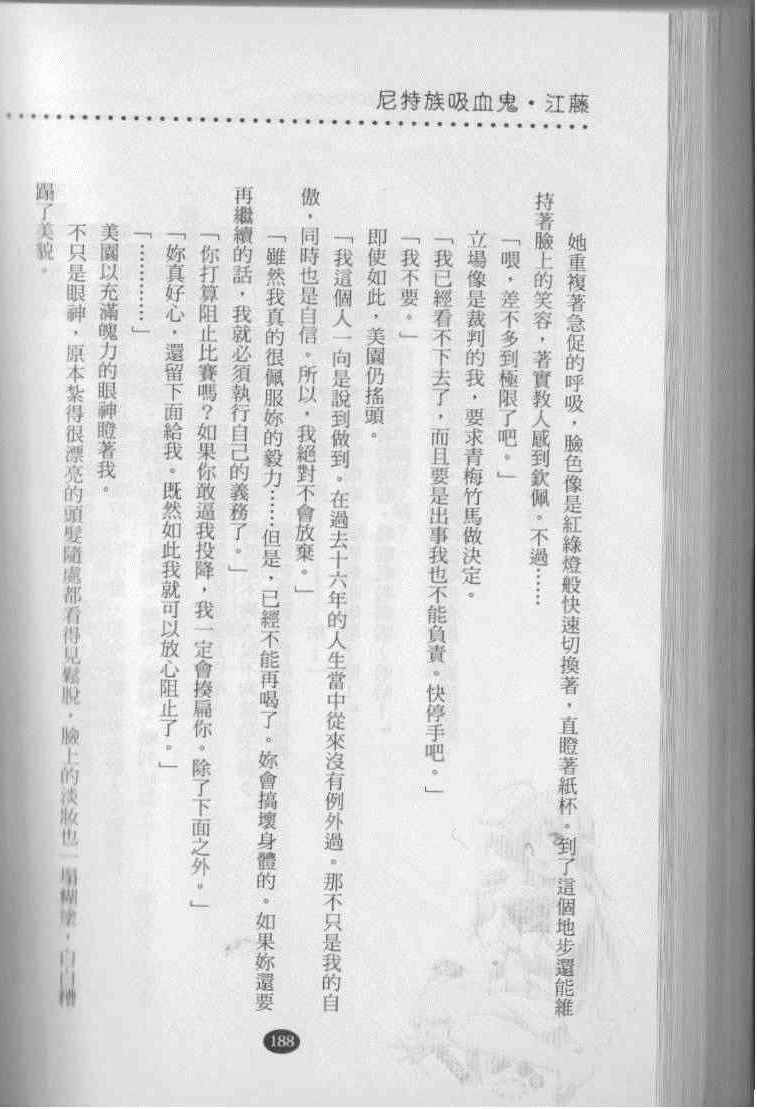 尼特族吸血鬼・江藤
她重複著急促的呼吸，臉色像是紅綠燈般快速切換著，直瞪著紙杯。到了這個地步還能維
持著臉上的笑容，著實教人感到欽佩。不過……
「喂，差不多到極限了吧。」
立場像是裁判的我，要求青梅竹馬做決定。
「我已經看不下去了，而且要是出事我也不能負責。快停手吧。」
「我不要。」
即使如此，美園仍搖頭。
「我這個人一向是說到做到。在過去十六年的人生當中從來沒有例外過。那不只是我的自
傲，同時也是自信。所以，我絕對不會放棄。」
「雖然我真的很佩服妳的毅力……但是，已經不能再喝了。妳會搞壞身體的。如果妳還要
再繼續的話，我就必須執行自己的義務了。」
「你打算阻止比賽嗎？如果你敢逼我投降，我一定會揍扁你。除了下面之外。」
「妳真好心，還留下面給我。既然如此我就可以放心阻止了。」
「…………」
美園以充滿魄力的眼神瞪著我。
不只是眼神，原本紮得很漂亮的頭髮隨處都看得見鬆脫，臉上的淡妝也一塌糊塗，白白糟
蹋了美貌。
188